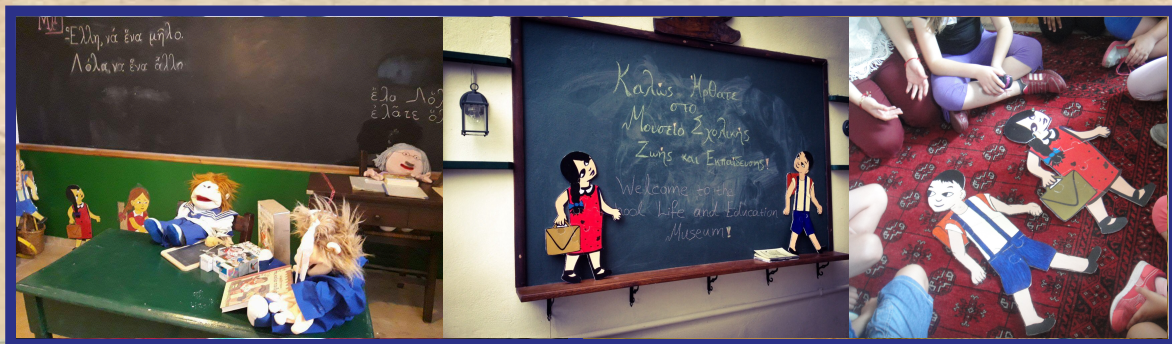 Μμ
-Ἕλλη, νά ἕνα μῆλο.
Λόλα, να ἕνα ἄλλο
ἔλα Λόλ
ἐλᾶτε ὅλ
Καλώς Ήρθατε
στο
Μουσείο Σχολικής
Ζωής και Εκπαίδευσης!
Welcome to the
School Life and Education
Museum!